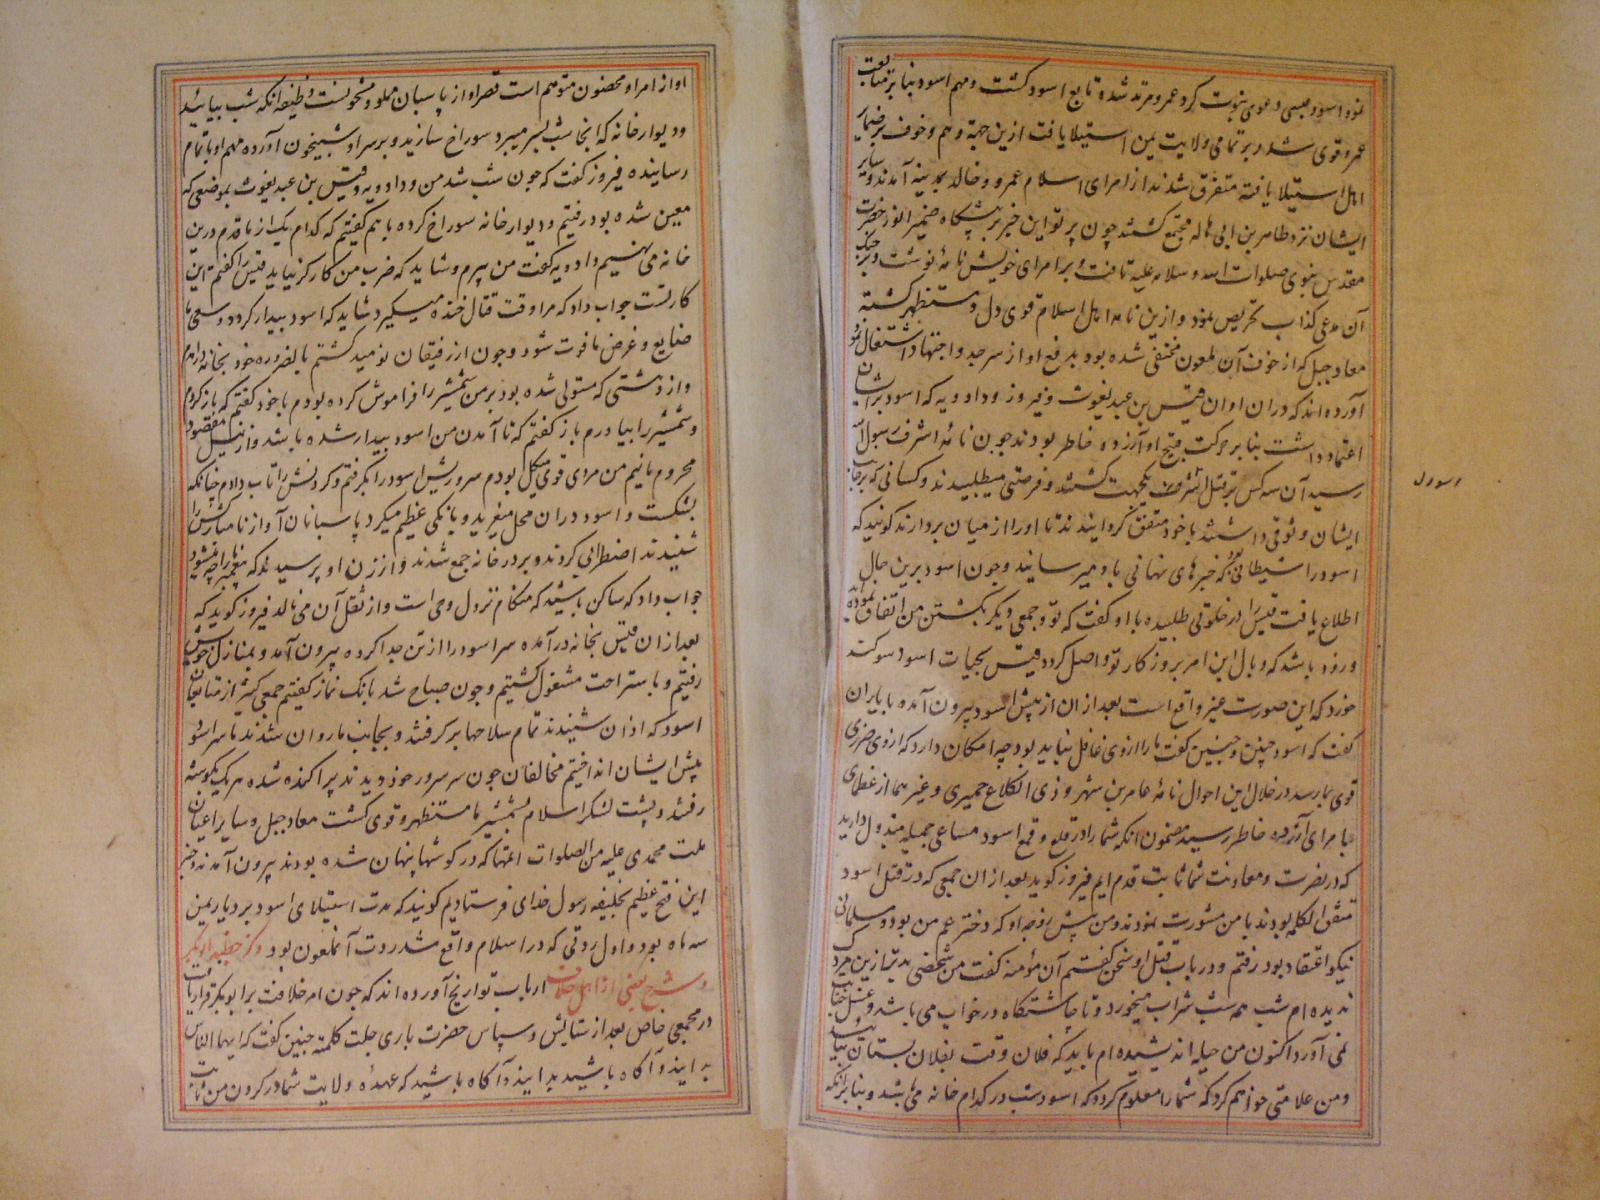 نموده اسود عبسی دعوی نبوت کرد عمرو مرتد شده تابع اسود گشت و مهم اسود بنابر متابعت
عمرو قوی شد و بر تمامی ولایت یمن استیلا یافت ازین جهة وهم و خوف بر ضمایر
اهل استیلا یافته متفرق شدند از امرای اسلام عمرو و خالد بمدینه آمدند و سایر
ایشان نزد طاهر بن ابی هاله مجتمع گشتند چون پرتو این خبر بر پیشکاه ضمیر انور حضرت
مقدس نبوی صلوات الله و سلامه علیه تافت و بر امرای خویش نامهٔ نوشت و بر جنک
آن مدعی کذاب تحریص نمود و ازین نامه اهل اسلام قوی دل و مستظهر گشته
معاد جبل که از خوف آن لمعون مختفی شده بود بدفع او از سر جد و اجتهاد اشتغال نمود
آورده اند که در ان اوان قیس بن عبد یغوث و فیروز و دادویه که اسود بر ایشان
اعتماد داشت بنابر حرکت قبیح او آزرده خاطر بودند چون نامهٔ اشرف رسول الله
رسید آن سه کس بر قتل یکجهت گشتند و فرصتی میطلبیدند و کسانی که بر جانب
ایشان وثوقی داشتند با خود متفق گردانیدند تا او را از میان بردارند گویند که
اسود را شیطانی بود که خبرهای نهانی باو میرسانید و چون اسود برین حال
اطلاع یافت قیس را در خلوتی طلبیده با او گفت که تو و جمعی دیگر بکشتن من اتفاق نموده
ورزه باشد که وبال این امر بروزکار تو واصل گردد قیس بحیات اسود سوکند
خورد که این صورت غیر واقع است بعد از ان از پیش اسود بیرون آمده با یاران
گفت که اسود چنین و چنین گفت ما را از وی غافل نباید بود چه امکان دارد که از وی ضرری
قوی بما رسد در خلال این احوال نامهٔ عامر بن شهر و ذی الکلاع حمیری و غیر هما از عظمای
با مرای آزرده خاطر رسید مضمون انکه شما را در قلع و قمع اسود مساعی جمیله مبذول دارید
که در نصرت و معاونت شما ثابت قدم ایم فیروز گوید بعد از ان جمعی که در قتل اسود
متفق الکلمه بودند با من مشورت نمودند و من پیش زوجه او که دختر عم من بود و مسلمانی
نیکو اعتقاد بود رفتم و در باب قتل او سخن گفتم آن مؤمنه گفت من شخصی بدتر از ین مرد
ندیده ام شب همه شب شراب میخورد و تا چاشتکاه در خواب می باشد و غسل جنابت
نمی آورد اکنون من حیله اندیشیده ام باید که فلان وقت بفلان بستان بیایید
و من علامتی خواهم کرد که شما را معلوم گردد که اسود شب در کدام خانه می باشد و بنابر انکه
و سود
او از امراء محصنون متوهم است قصر او از پاسبان مملو و مشحونست وظیفه انکه شب بیائید
و دیوار خانه که انجا شب بسر میبرد سوراخ سازید و بر سر او شبیخون آورده مهم او باتمام
رسانیده فیروز گفت که چون شب شد من و دادویه و قیس بن عبد یغوث بموضعی که
معین شده بود رفتیم و دیوار خانه سوراخ کرده با هم گفتیم که کدام یک از ما قدم درین
خانه می نهیم دادویه گفت من پیرم و شاید که ضرب من کارگر نیاید قیس را گفتم این
کار تست جواب داد که مرا وقت قتال خنده میگیرد شاید که اسود بیدار گردد و سعی ما
ضایع و غرض ما فوت شود و چون از رفیقان نومید گشتم بالضروره خود بخانه درامدم
و از دهشتی که مستولی شده بود بر من شمشیر را فراموش کرده بودم با خود گفتم که باز گردم
و شمشیر را بیاورم باز گفتم که تا آمدن من اسود بیدار شده باشد و از نیل مقصود
محروم مانیم من مردی قوی هیکل بودم سر و ریش اسود را بگرفتم و گردنش را تاب دادم چنانکه
بشکست و اسود در ان محل میغرید و بانکی عظیم میکرد پاسبانان آواز نا مبارکش را
شنیدند اضطرابی کردند و بر در خانه جمع شدند و از زن او پرسیدند که پیغمبر ما را چه میشود
جواب داد که ساکن باشید که هنکام نزول وحی است و از ثقل آن می نالد فیروز گوید که
بعد از ان قیس بخانه در آمده سر اسود را از تن جدا کرده بیرون آمد و بمنازل خویش
رفتیم و باستراحت مشغول گشتیم و چون صباح شد بانک نماز گفتیم جمعی کثیر از متابعان
اسود که اذان شنیدند تمام سلاحها بر گرفتند و بجانب ما روان شدند تا سر اسود
پیش ایشان انداختیم مخالفان چون سر سرور خود دیدند پراکنده شده هر یک بگوشه
رفتند و پشت لشکر اسلام بشمشیر ما مستظهر و قوی گشت معاد جبل و سایر اعیان
ملت محمدی علیه من الصلوات اعمها که در گوشها پنهان شده بودند بیرون آمدند و خبر
این فتح عظیم بخلیفه رسول خدای فرستادیم گویند که مدت استیلای اسود بر دیار یمن
سه ماه بود و اول ردتی که در اسلام واقع شد ردت آنملعون بود ذکر خطبه ابوبکر
و شرح بعضی از اهل خلاف ارباب تواریخ آورده اند که چون امر خلافت بر ابوبکر قرار یافت
در مجمعی خاص بعد از ستایش و سپاس حضرت باری جلت کلمته چنین گفت که ایها الناس
بدانید و آگاه باشید بدانید و آگاه باشید که عهدهٔ ولایت شما در گردن من ثابت